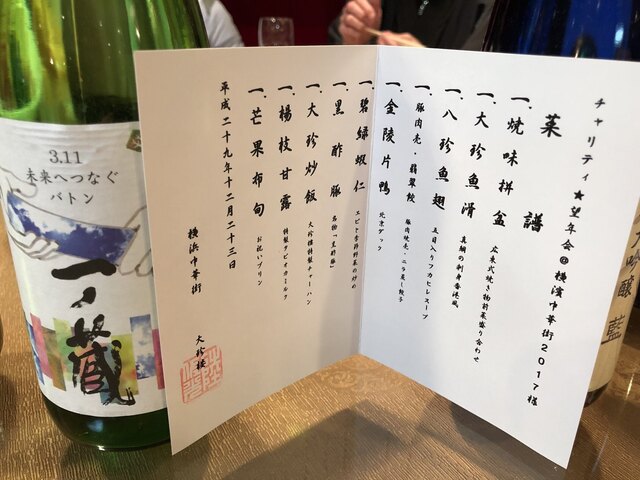 チャリティ★望年会@横濱中華街2017様
菜譜
一.焼味拼盆
広東式焼き物前菜盛り合わせ
一.大珍魚滑
真鯛の刺身香港風
一.八珍魚翅
五目入りフカヒレスープ
一.豚肉売・翡翠餃
豚肉焼売・ニラ蒸し餃子
一.金陵片鴨
北京ダック
一.碧緑蝦仁
エビと青野野菜の炒め
一.黒酢豚
名物「黒酢豚」
一.大珍炒飯
大珍樓特製チャーハン
一.楊枝甘露
特製タピオカミルク
一.芒果布甸
お祝いプリン
平成二十九年十二月二十三日
横浜中華街
大珍樓
3.11
未来へつなぐ
バトン
一ノ蔵
吟醸
藍